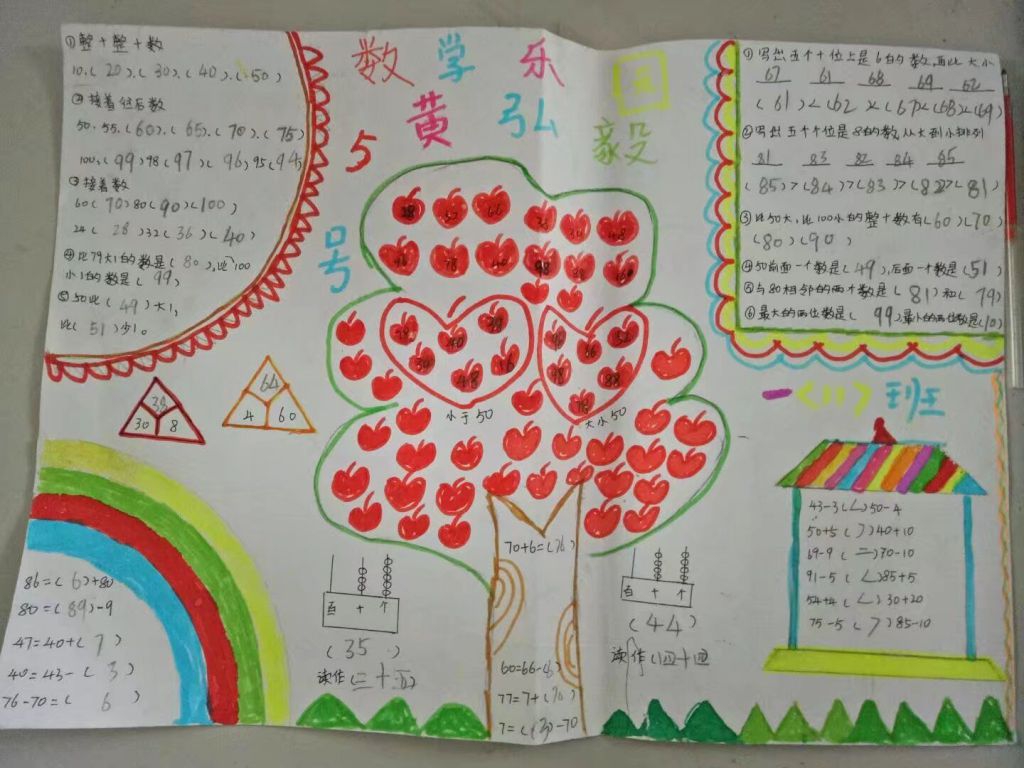 数学乐园
黄弘毅
5号
①整十整十数
10、(20)、(30)、(40)、(50)
②接着往后数
50、55、(60)、(65)、(70)、(75)
100、(99)98(97)、(96)、95(94)
③接着数
60(70)80(90)(100)
24(28)32(36)(40)
④比79大1的数是(80),比100
小1的数是(99)
⑤50比(49)大1,
比(51)少1。
①写出五个十位上是6的数,再比大小
67 61 68 69 62
(61)<(62)<(67)<(68)<(69)
②写出五个十位是8的数,从大到小排列
81 83 82 84 85
(85)>(84)>(83)>(82)>(81)
③比50大,比100小的整十数有(60)(70)
(80)(90)
④50前面一个数是(49),后面一个数是(51)
⑤与80相邻的两个数是(81)和(79)
⑥最大的两位数是(99)最小的两位数是(10)
一(11)班
38
30 8
64
4 60
小于50
大小50
86=(6)+80
80=(89)-9
47=40+(7)
40=43-(3)
76-70=(6)
百 十 个
(35)
读作(三十五)
70+6=(76)
60=66-(6)
77=7+(70)
百 十 个
(44)
读作(四十四)
43-3(<)50-4
50+5(>)40+10
69-9(=)70-10
91-5(<)85+5
75-5(>)85-10